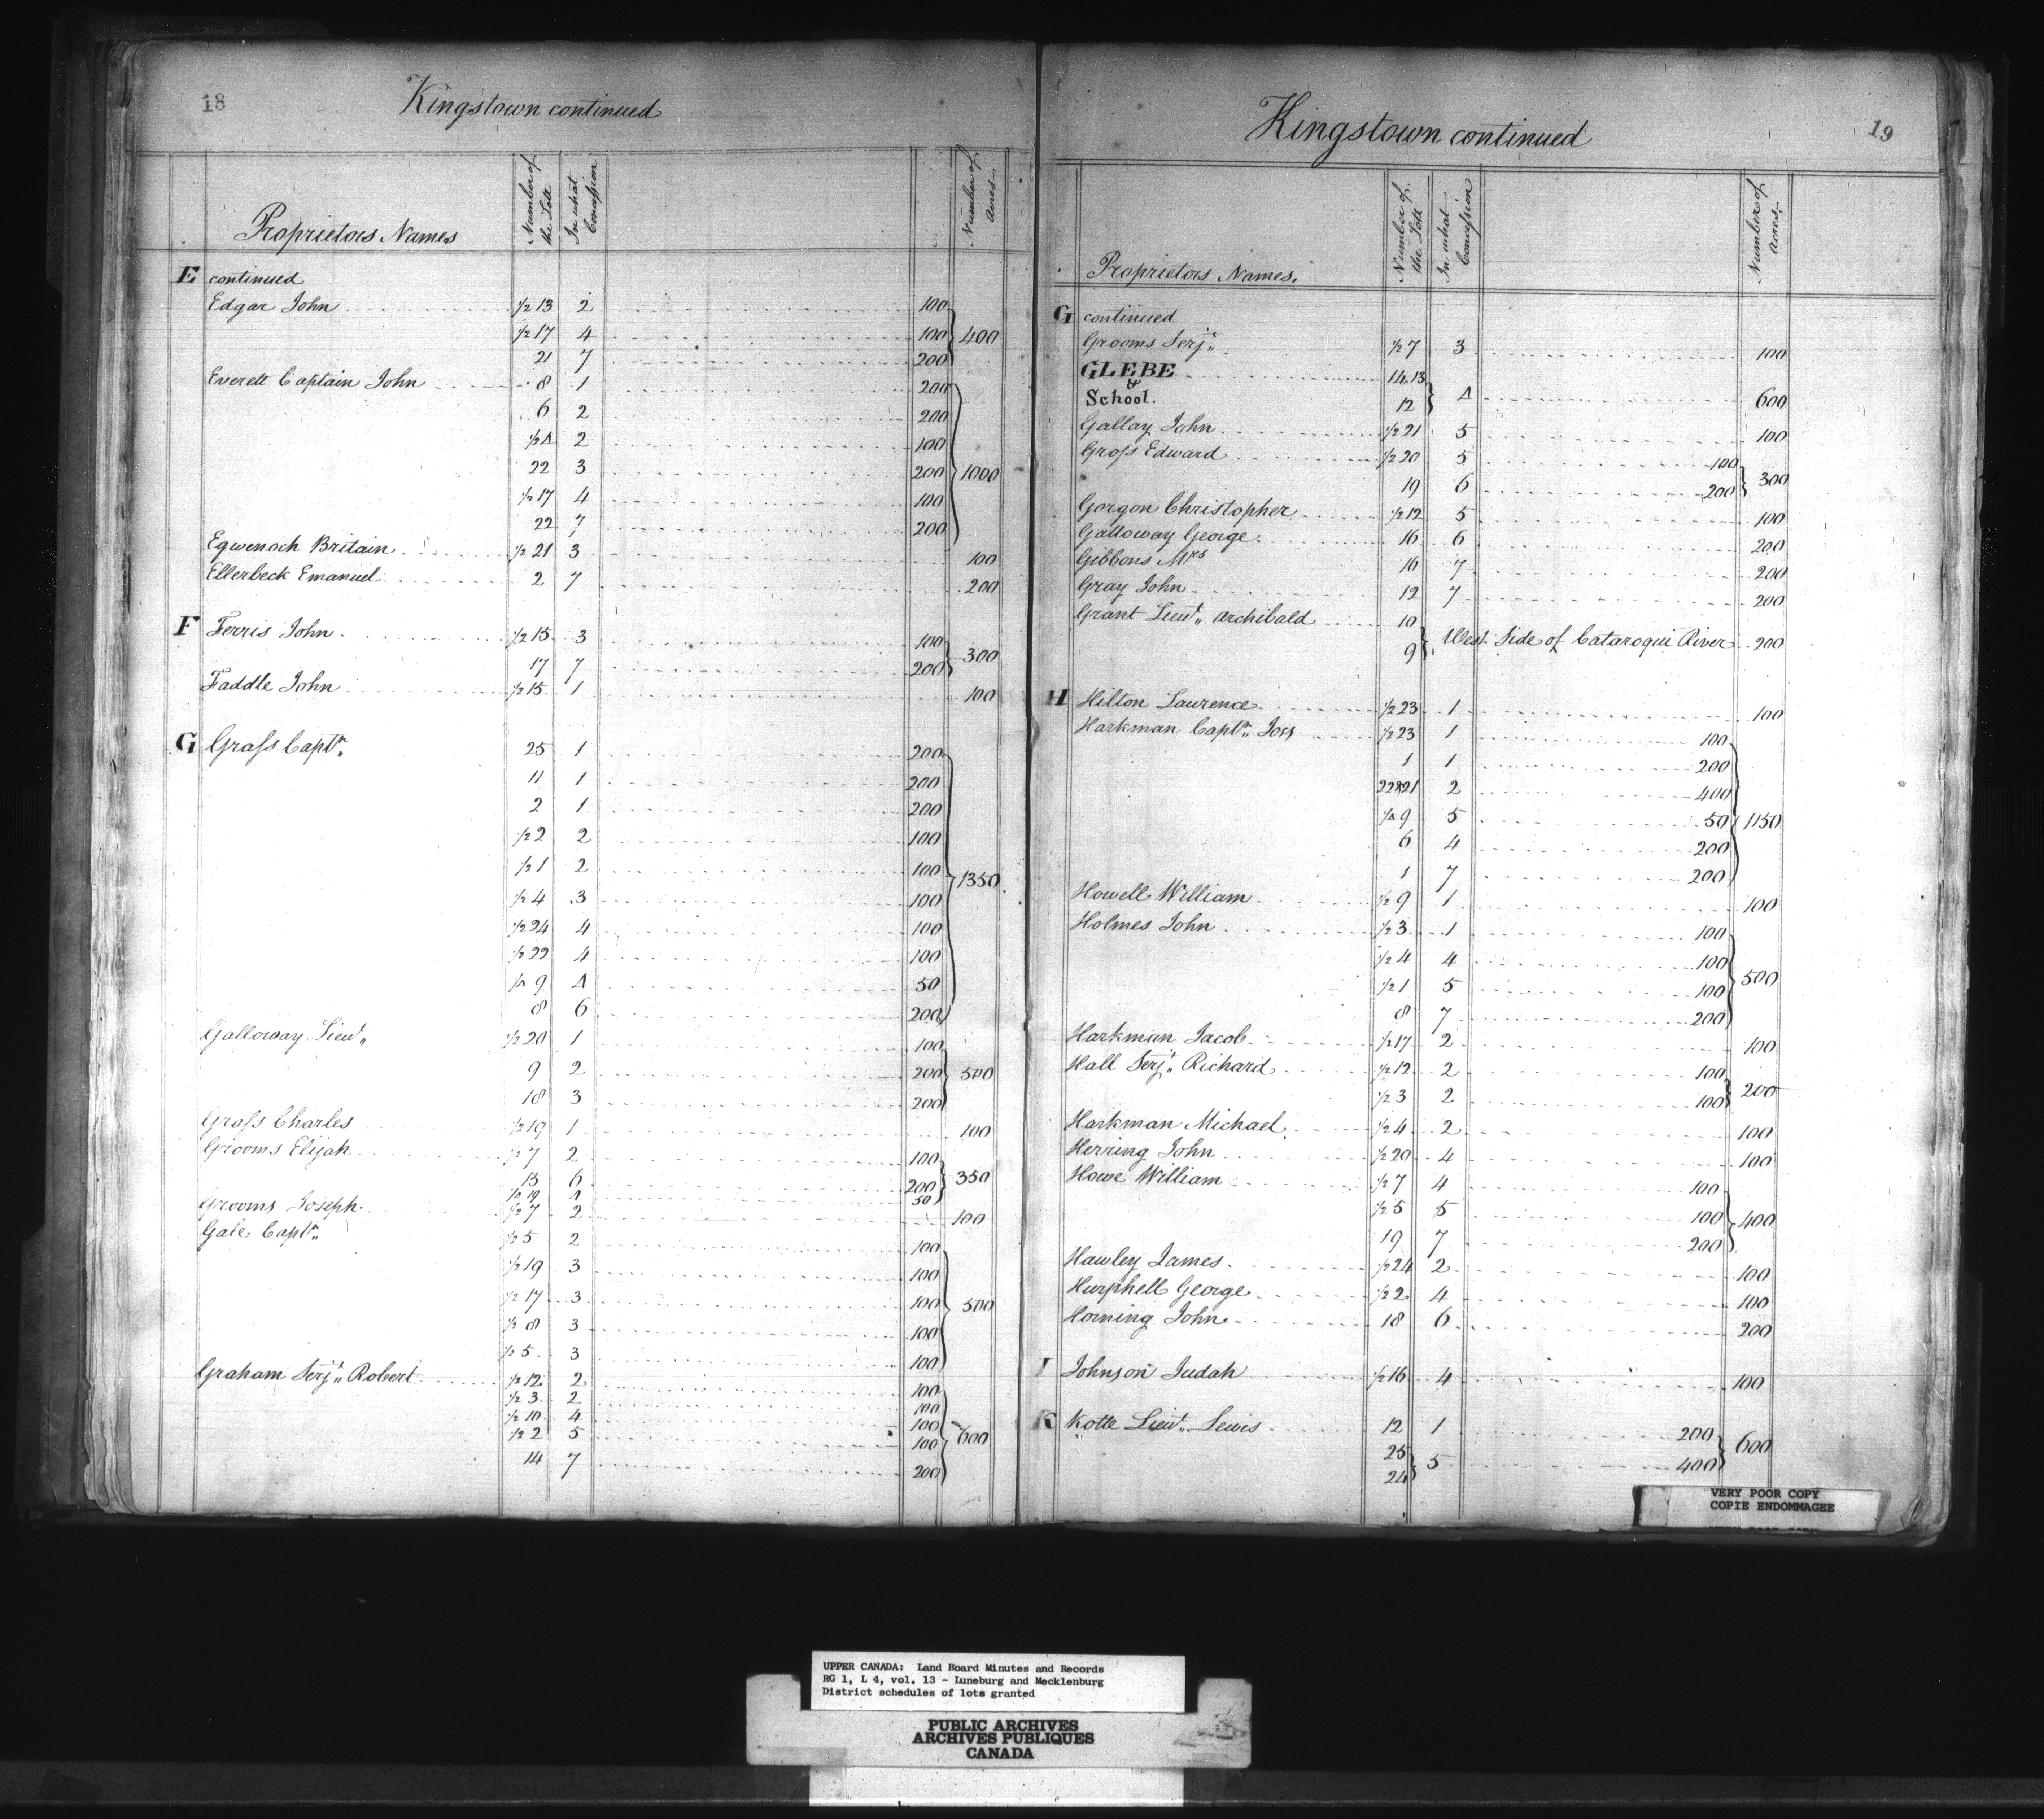 18
Kingstown continued
Proprietors Names
Number of the Lott
In what Concession
Number of acres.
E continued
Edgar John 1/2 13 2 100
1/2 17 4 100 400
21 7 200
Everett Captain John 8 1 200
6 2 200
1/2 4 2 100
22 3 200 1000
1/2 17 4 100
22 7 200
Eqwenoch Britain 1/2 21 3 100
Ellerbeck Emanuel 2 7 200
F Ferris John 1/2 15 3 100
17 7 200 300
Faddle John 1/2 15 1 100
G Grass Captn. 25 1 200
11 1 200
2 1 200
1/2 2 2 100
1/2 1 2 100 1350
1/2 4 3 100
1/2 24 4 100
1/2 22 4 100
1/4 9 4 50
8 6 200
Galloway Lieut. 1/2 20 1 100
9 2 200 500
18 3 200
Grass Charles 1/2 19 1 100
Grooms Elijah 1/2 7 2 100
13 6 200 350
1/4 19 4 50
Grooms Joseph 1/2 7 2 100
Gale Captn. 1/2 5 2 100
1/2 19 3 100
1/2 17 3 100 500
1/2 8 3 100
1/2 5 3 100
Graham Serjt. Robert 1/2 12 2 100
1/2 3 2 100
1/2 10 4 100
1/2 2 5 100 600
14 7 200
19
Kingstown continued
Proprietors Names.
Number of the Lott
In what Concession
Number of acres.
G continued
Grooms Serjt. 1/2 7 3 100
GLEBE 14.13
& School. 12 4 600
Gallay John 1/2 21 5 100
Gross Edward 1/2 20 5 100
19 6 200 300
Gorgon Christopher 1/2 12 5 100
Galloway George 16 6 200
Gibbons Mrs 16 7 200
Gray John 12 7 200
Grant Lieut. Archibald 10
9 West Side of Cataroqui River 200
H Hilton Laurence 1/2 23 1 100
Harkman Captn. Joss 1/2 23 1 100
1 1 200
22&21 2 400
1/4 9 5 50 1150
6 4 200
1 7 200
Howell William 1/2 9 1 100
Holmes John 1/2 3 1 100
1/2 4 4 100
1/2 1 5 100 500
8 7 200
Harkman Jacob 1/2 17 2 100
Hall Serjt. Richard 1/2 12 2 100
1/2 3 2 100 200
Harkman Michael 1/2 4 2 100
Herring John 1/2 20 4 100
Howe William 1/2 7 4 100
1/2 5 5 100 400
19 7 200
Hawley James 1/2 24 2 100
Hurphell George 1/2 2 4 100
Horning John 18 6 200
I Johnson Judah 1/2 16 4 100
K Kotte Lieut. Lewis 12 1 200
25 5 400 600
24
VERY POOR COPY
COPIE ENDOMMAGEE
UPPER CANADA: Land Board Minutes and Records
RG 1, L 4, vol. 13 - Luneburg and Mecklenburg
District schedules of lots granted
PUBLIC ARCHIVES
ARCHIVES PUBLIQUES
CANADA